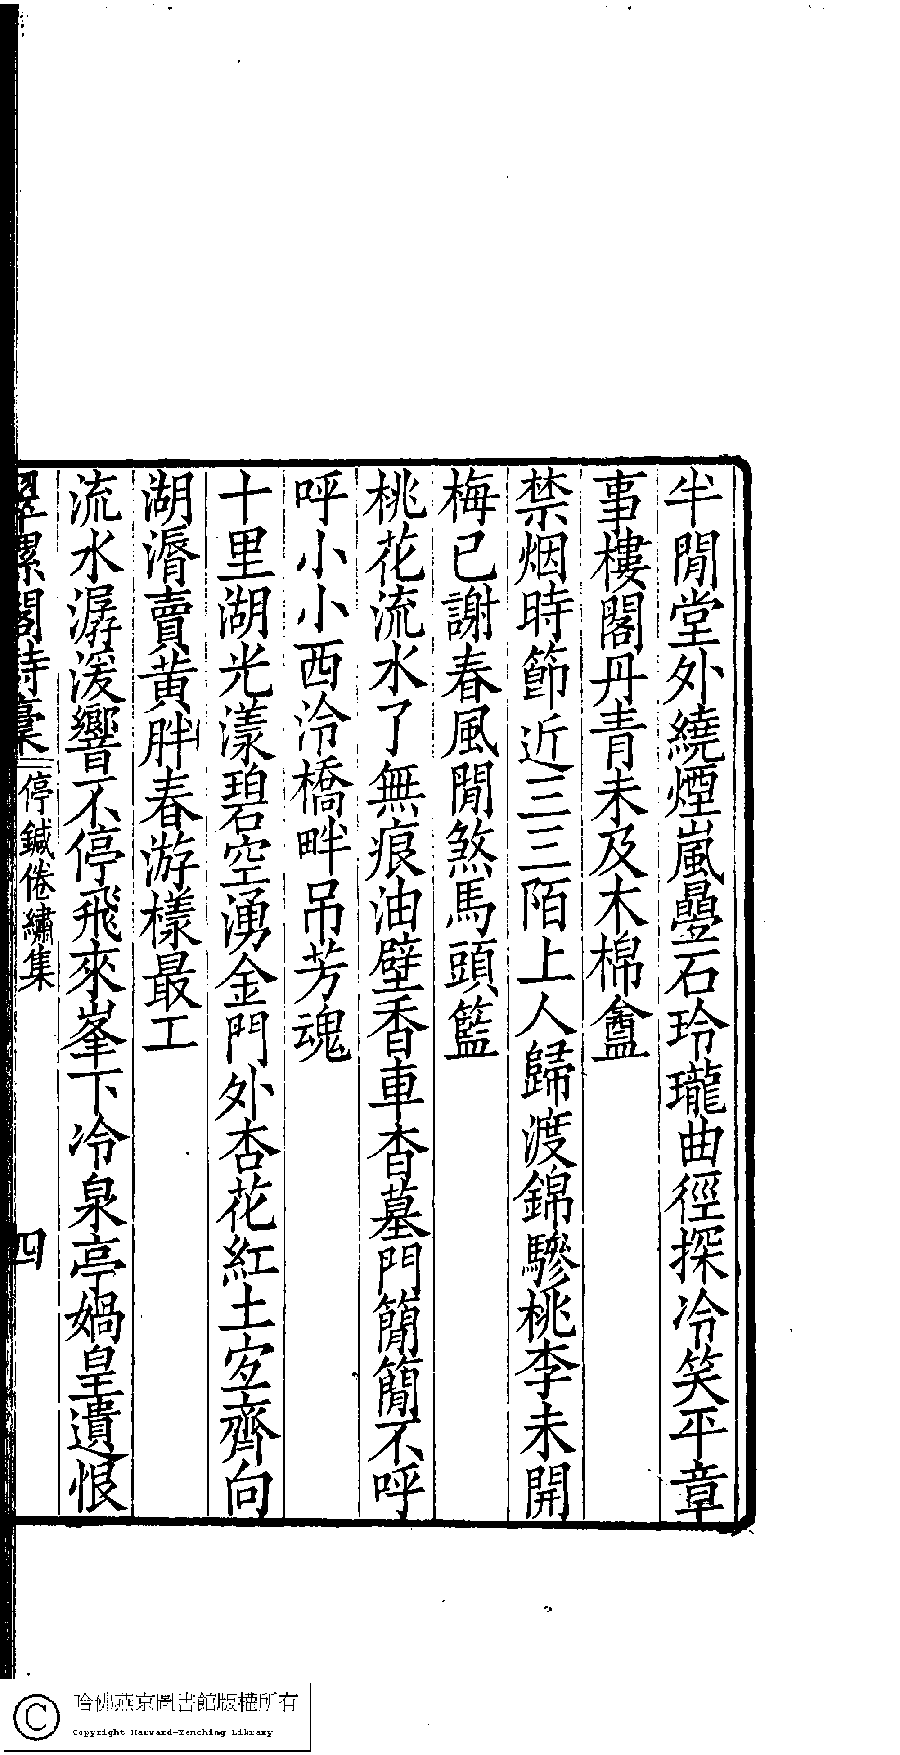 半閒堂外繞煙嵐疊石玲瓏曲徑探冷笑平章
事樓閣丹青未及木棉盫
禁烟時節近三三陌上人歸渡錦驂桃李未開
梅已謝春風閒煞馬頭籃
桃花流水了無痕油壁香車杳墓門簡簡不呼
呼小小西泠橋畔吊芳魂
十里湖光漾碧空湧金門外杏花紅土宜齊向
湖漘賣黃胖春游樣最工
流水潺湲響不停飛來峯下冷泉亭媧皇遺恨
翠螺閣詩稾 停鍼倦繡集 四
哈佛燕京圖書館版權所有
Copyright Harvard-Yenching Library